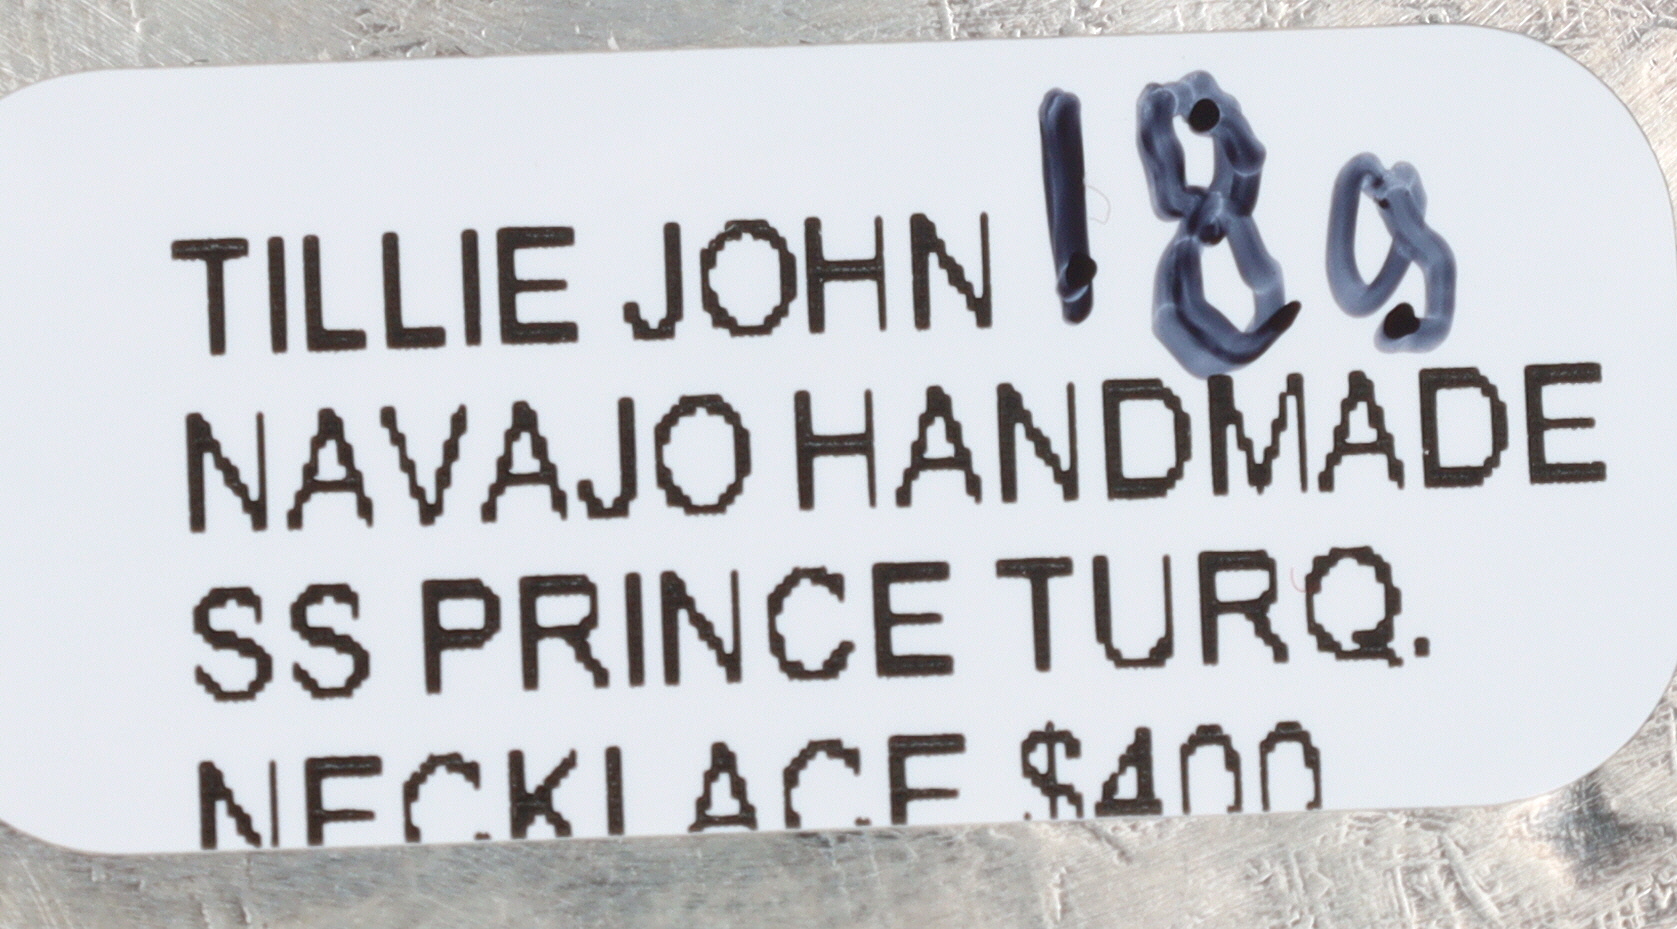 TILLIE JOHN 18g
NAVAJO HANDMADE
SS PRINCE TURQ.
NECKLACE $400